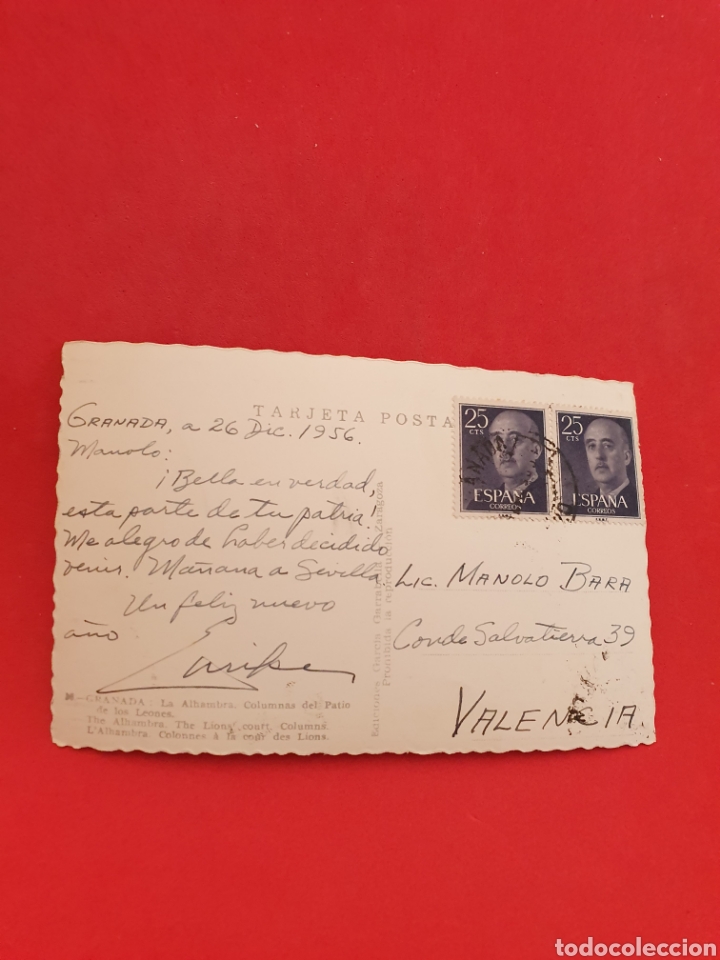 TARJETA POSTA
GRANADA, a 26 Dic. 1956.
Manolo:
¡Bella en verdad,
esta parte de tu patria!
Me alegro de haber decidido
venir. Mañana a Sevilla.
Un feliz nuevo
año
25
CTS
ESPAÑA
CORREOS
25
CTS
ESPAÑA
CORREOS
Lic. MANOLO BARA
Conde Salvatierra 39
VALENCIA.
Ediciones García Garrabella Zaragoza
Prohibida la reproducción
GRANADA: La Alhambra. Columnas del Patio
de los Leones.
The Alhambra. The Lions' court. Columns.
L'Alhambra. Colonnes à la cour des Lions.
todocoleccion